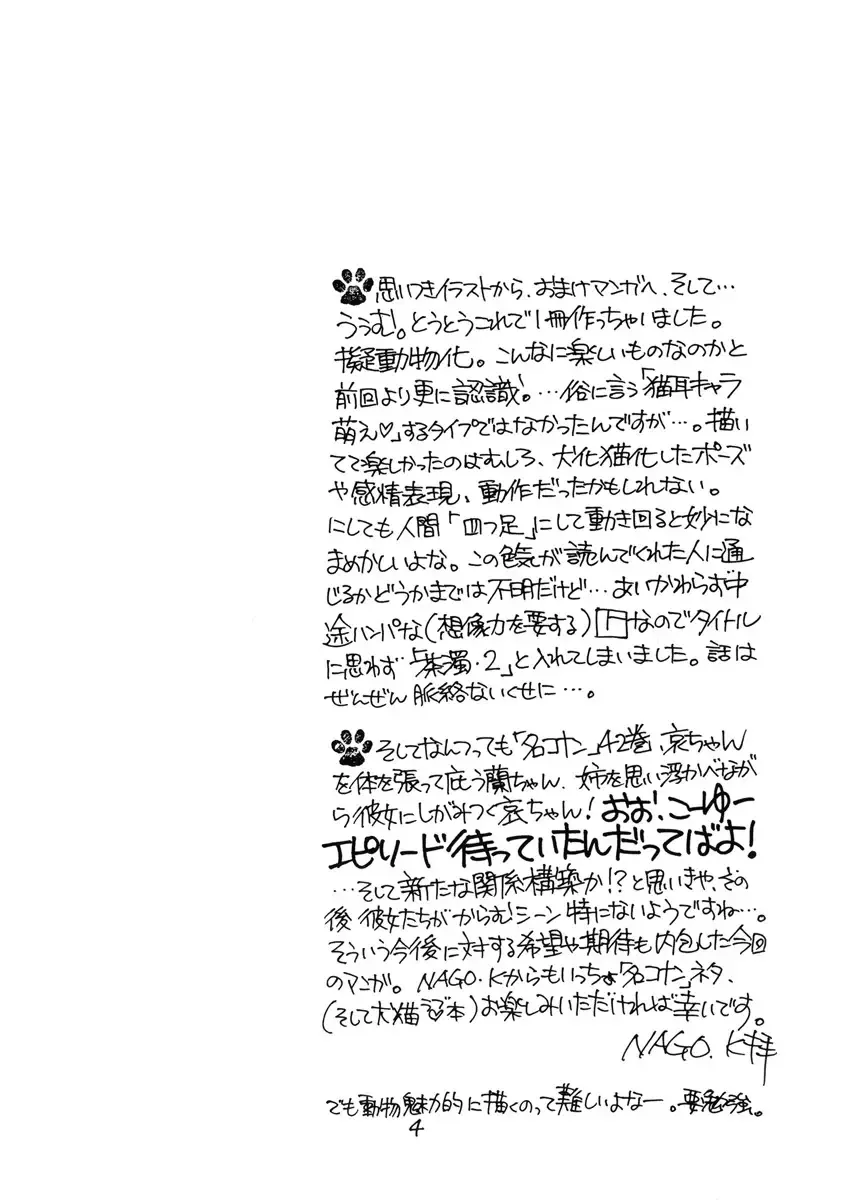 思いつきイラストから、おまけマンガへ、そして…
ううむ!。とうとうこれで1冊作っちゃいました。
擬動物化。こんなに楽しいものなのかと
前回より更に認識!。…俗に言う「猫耳キャラ
萌え♡」するタイプではなかったんですが…。描い
てて楽しかったのはむしろ、犬化猫化したポーズ
や感情表現、動作だったかもしれない。
にしても人間「四つ足」にして動き回ると妙にな
まめかしいよな。この色気が読んでくれた人に通
じるかどうかまでは不明だけど…あいかわらず中
途ハンパな(想像力を要する)Hなのでタイトル
に思わず「茶濁・2」と入れてしまいました。話は
ぜんぜん脈絡ないくせに…。
そしてなんつっても「名コナン」42巻、哀ちゃん
を体を張って庇う蘭ちゃん、姉を思い浮かべなが
ら彼女にしがみつく哀ちゃん!おお!こーゆー
エピソード待っていたんだってばよ!
…そして新たな関係構築か!?と思いきや、その
後彼女たちがからむ!シーン特にないようですね…。
そういう今後に対する希望や期待も内包した今回
のマンガ。NAGO.Kからもいっちょ「名コナン」ネタ、
(そして犬猫ラブ♡本)お楽しみいただければ幸いです。
NAGO.K拝
でも動物魅力的に描くのって難しいよなー。要勉強。
4